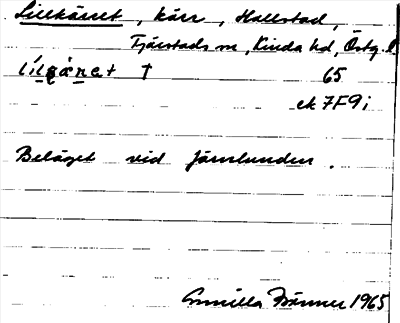 Lillkärret, kärr, Hallstad,
Tjärstads sn, Kinda hd, Östg. l.
†
65
ek 7F9i
Beläget vid Järnlunden.
Gunilla Bränner 1965